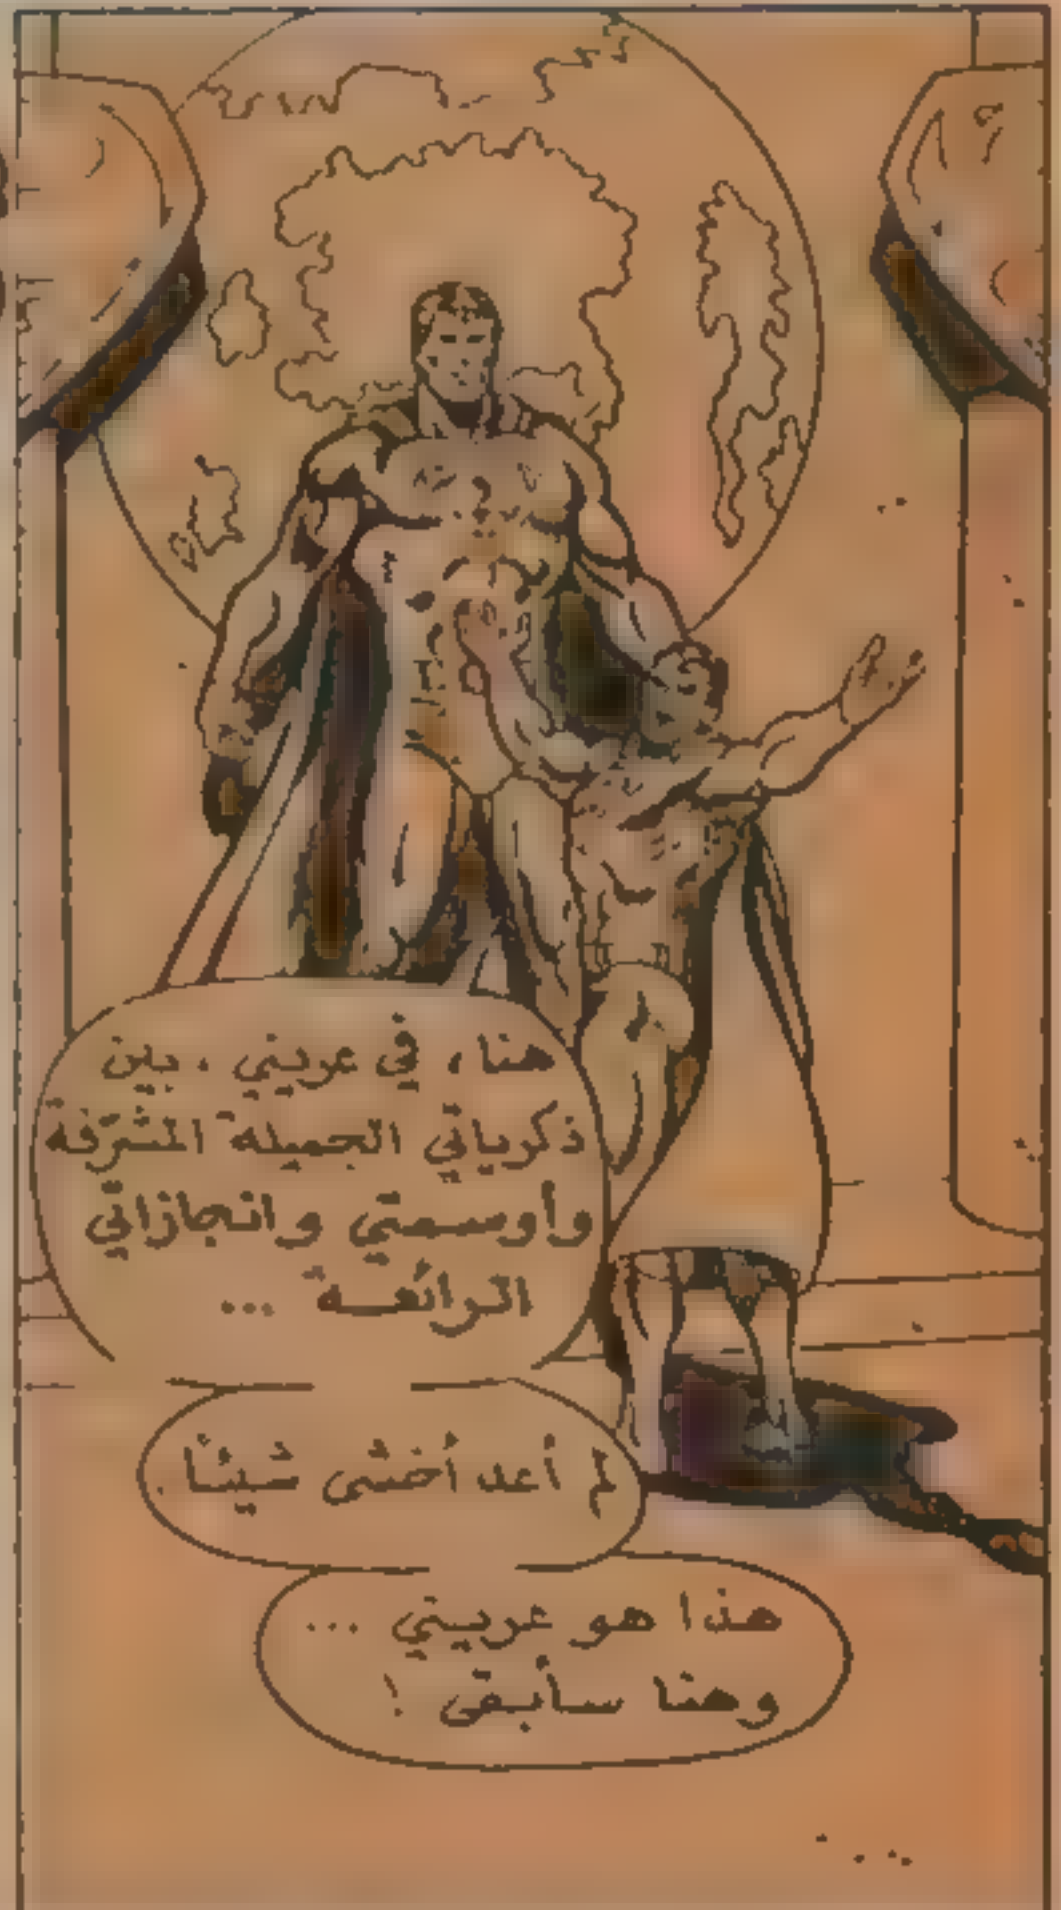 هنا، في عريني، بين
ذكرياتي الجميلة المشرّفة
وأوسمتي وانجازاتي
الرائعة ...
لم أعد أخشى شيئاً.
هذا هو عريني ...
وهنا سأبقى !